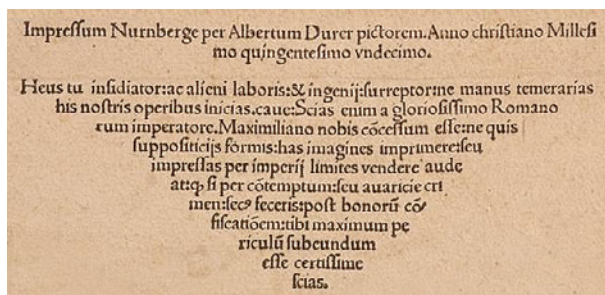 Impreſſum Nurnberge per Albertum Durer pictorem. Anno chriſtiano Milleſi
mo quingenteſimo vndecimo.
Heus tu inſidiator: ac alieni laboris: & ingenij: ſurreptor: ne manus temerarias
his noſtris operibus inicias. caue: Scias enim a glorioſiſſimo Romano
rum imperatore. Maximiliano nobis cōceſſum eſſe: ne quis
ſuppoſiticijs formis: has imagines imprimere: ſeu
impreſſas per imperij limites vendere aude
at: ꝙ ſi per cōtemptum: ſeu auaricie cri
men: ſecꝰ feceris: poſt bonorū cō
fiſcatiōem: tibi maximum pe
riculū ſubeundum
eſſe certiſſime
ſcias.